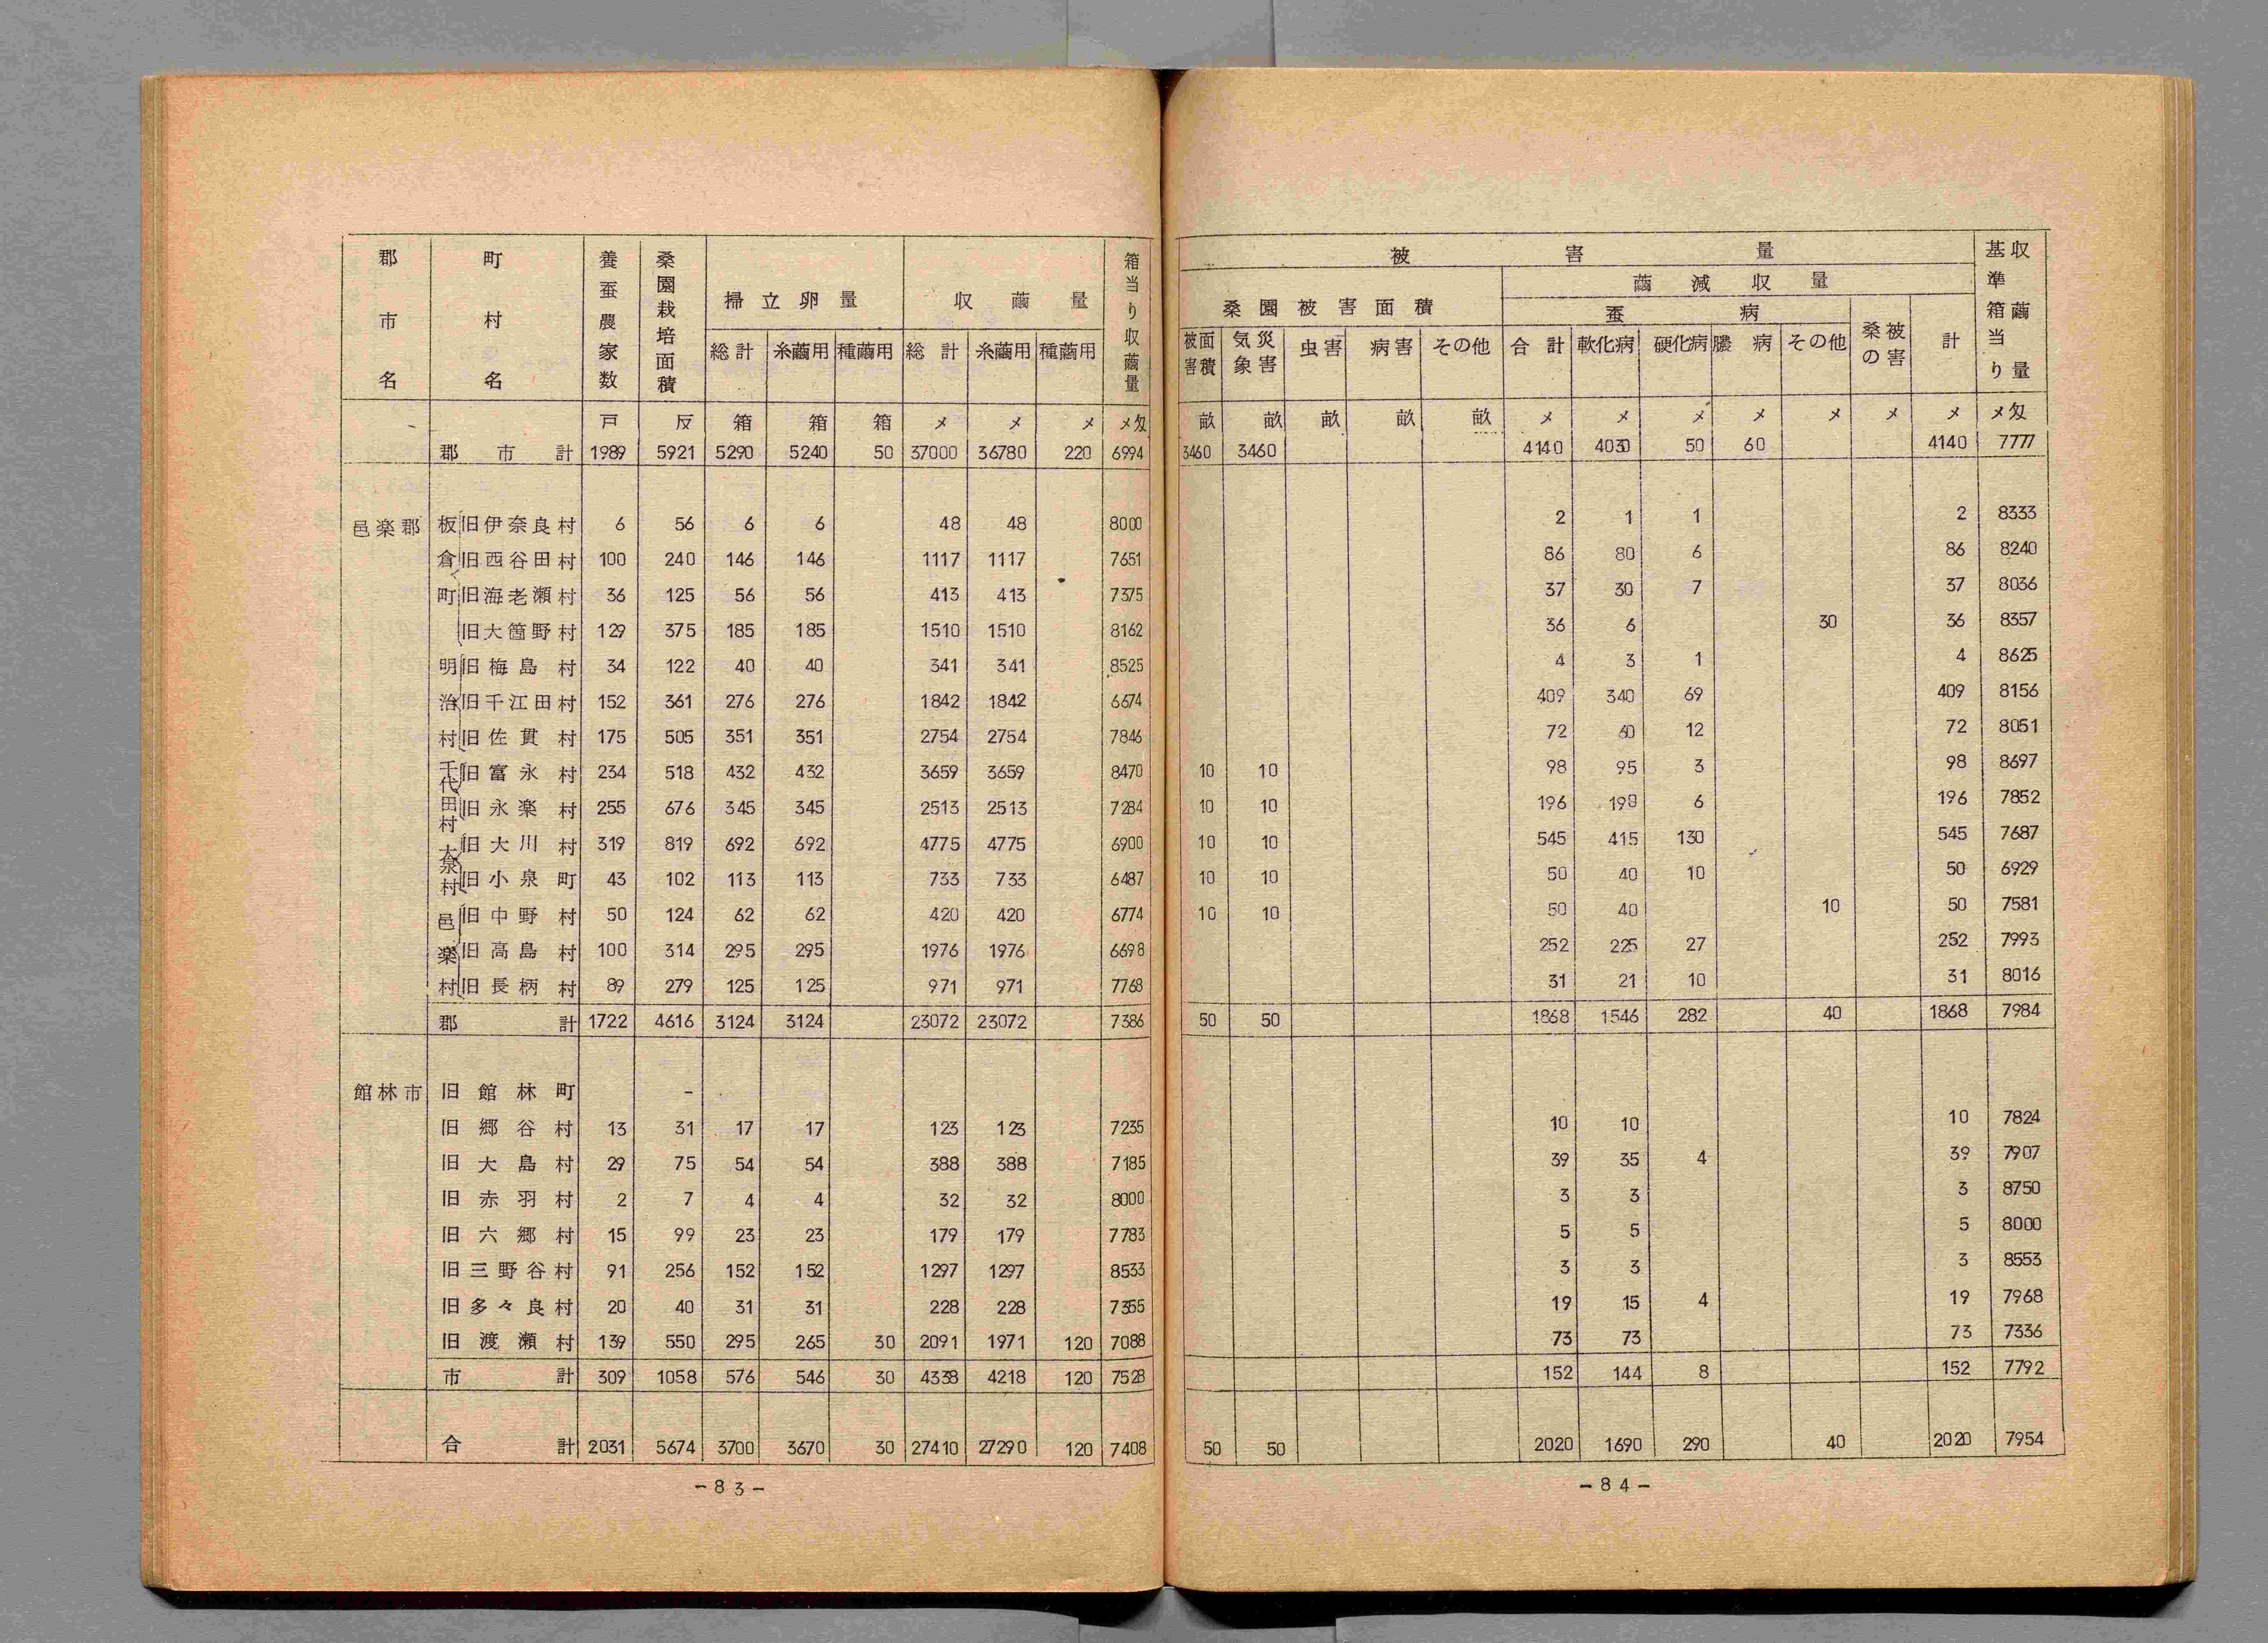 郡市名 町村名 養蚕農家数 桑園栽培面積 掃立卵量 収繭量 箱当り収繭量
総計 糸繭用 種繭用 総計 糸繭用 種繭用
戸 反 箱 箱 箱 メ メ メ メ匁
郡市計 1989 5921 5290 5240 50 37000 36780 220 6994
邑楽郡 板倉町 旧伊奈良村 6 56 6 6 48 48 8000
旧西谷田村 100 240 146 146 1117 1117 7651
旧海老瀬村 36 125 56 56 413 413 7375
旧大箇野村 129 375 185 185 1510 1510 8162
明治村 旧梅島村 34 122 40 40 341 341 8525
旧千江田村 152 361 276 276 1842 1842 6674
旧佐貫村 175 505 351 351 2754 2754 7846
千代田村 旧富永村 234 518 432 432 3659 3659 8470
旧永楽村 255 676 345 345 2513 2513 7284
大泉村 旧大川村 319 819 692 692 4775 4775 6900
旧小泉町 43 102 113 113 733 733 6487
邑楽村 旧中野村 50 124 62 62 420 420 6774
旧高島村 100 314 295 295 1976 1976 6698
旧長柄村 89 279 125 125 971 971 7768
郡計 1722 4616 3124 3124 23072 23072 7386
館林市 旧館林町 -
旧郷谷村 13 31 17 17 123 123 7235
旧大島村 29 75 54 54 388 388 7185
旧赤羽村 2 7 4 4 32 32 8000
旧六郷村 15 99 23 23 179 179 7783
旧三野谷村 91 256 152 152 1297 1297 8533
旧多々良村 20 40 31 31 228 228 7355
旧渡瀬村 139 550 295 265 30 2091 1971 120 7088
市計 309 1058 576 546 30 4338 4218 120 7528
合計 2031 5674 3700 3670 30 27410 27290 120 7408
-83-
被害量 基準箱当り収繭量
桑園被害面積 繭減収量
蚕病 桑の被害 計
被害面積 気象災害 虫害 病害 その他 合計 軟化病 硬化病 膿病 その他
畝 畝 畝 畝 畝 メ メ メ メ メ メ メ メ匁
3460 3460 4140 4030 50 60 4140 7777
2 1 1 2 8333
86 80 6 86 8240
37 30 7 37 8036
36 6 30 36 8357
4 3 1 4 8625
409 340 69 409 8156
72 60 12 72 8051
10 10 98 95 3 98 8697
10 10 196 6 196 7852
10 10 545 415 130 545 7687
10 10 50 40 10 50 6929
10 10 50 40 10 50 7581
252 225 27 252 7993
31 21 10 31 8016
50 50 1868 1546 282 40 1868 7984
10 10 10 7824
39 35 4 39 7907
3 3 3 8750
5 5 5 8000
3 3 3 8553
19 15 4 19 7968
73 73 73 7336
152 144 8 152 7792
50 50 2020 1690 290 40 2020 7954
-84-